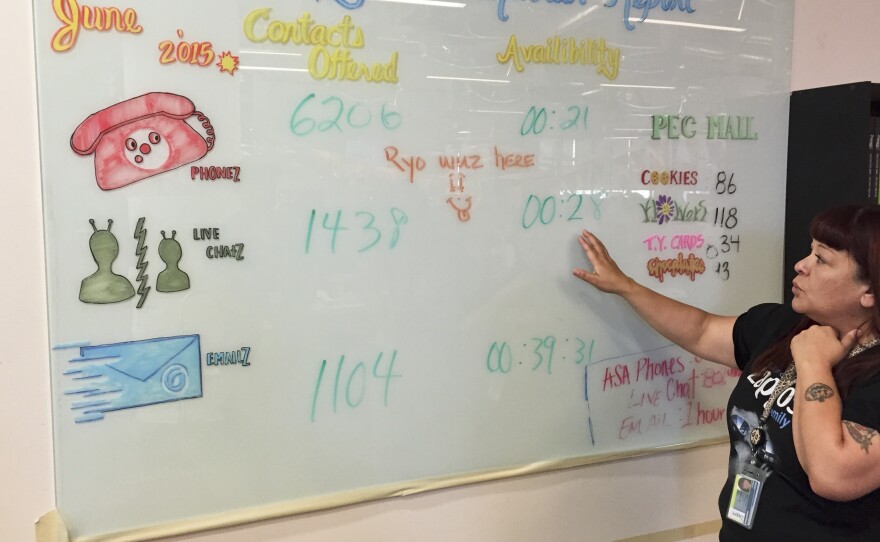 June
2015
Report
Contacts
Offered
Availibility
6206
00:21
PEC MAIL
Ryo wuz here
PHONEZ
COOKIES 86
1438
00:28
FlOWERS 118
LIVE
CHATZ
T.Y. CARDS 34
13
EMAILZ
1104
00:39:31
ASA Phones:
LIVE Chat
EMAIL: 1 hour